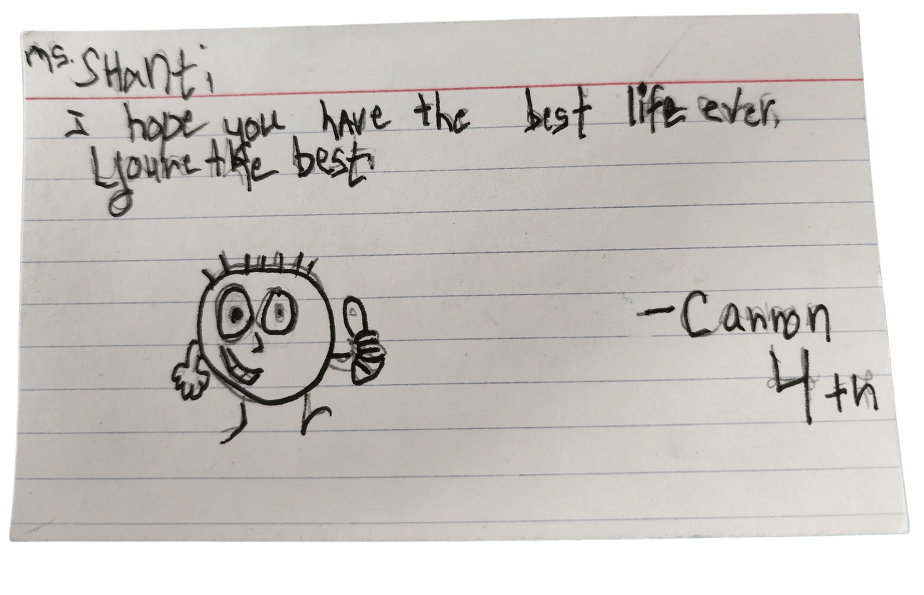 Ms. SHanti
I hope you have the best life ever.
You're the best.
-Cannon
4th